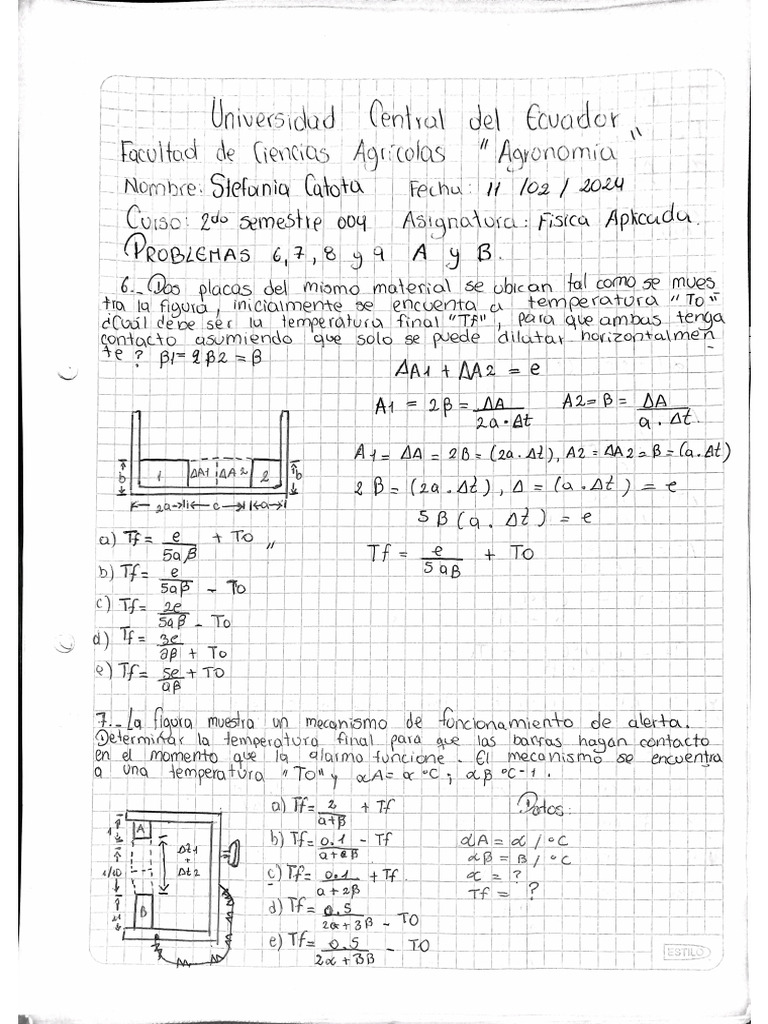 Universidad Central del Ecuador
Facultad de Ciencias Agrícolas "Agronomia"
Nombre: Stefania Catota Fecha: 11 /02 / 2024
Curso: 2do semestre 004 Asignatura: Fisica Aplicada.
PROBLEMAS 6, 7, 8 y 9 A y B.
6._ Dos placas del mismo material se ubican tal como se mues
tra la figura, inicialmente se encuenta a temperatura "To"
¿Cuál debe ser la temperatura final "Tf", para que ambas tenga
contacto asumiendo que solo se puede dilatar horizontalmen
te? β1= 2β2 = β
ΔA1 + ΔA2 = e
A1 = 2β = ΔA / 2a · Δt A2 = β = ΔA / a . Δt.
A1 = ΔA = 2β = (2a . Δt), A2 = ΔA2 = β = (a . Δt)
2β = (2a . Δt), Δ = (a . Δt) = e
5β (a . Δt) = e
Tf = e / 5aβ + TO
b 1 ΔA1 ΔA2 2 b
2a c a
a) Tf = e / 5aβ + TO "
b) Tf = e / 5aβ - TO
c) Tf = 2e / 5aβ - TO
d) Tf = 3e / aβ + TO
e) Tf = 5e / aβ + TO
7._ La figura muestra un mecanismo de funcionamiento de alerta.
Determinar la temperatura final para que las barras hagan contacto
en el momento que la alarmo funcione. El mecanismo se encuentra
a una temperatura "TO" y αA = α °C ; αβ °C-1.
A Δt1 + Δt2 1/10 B
a) Tf = 2 / a+β + Tf
b) Tf = 0.1 / a+2β - Tf
c) Tf = 0.1 / a + 2β + Tf
d) Tf = 0.5 / 2α + 3β - TO
e) Tf = 0.5 / 2α + 3β - TO
Datos:
αA = α / °C
αβ = β / °C
α = ?
Tf = ?
ESTILO